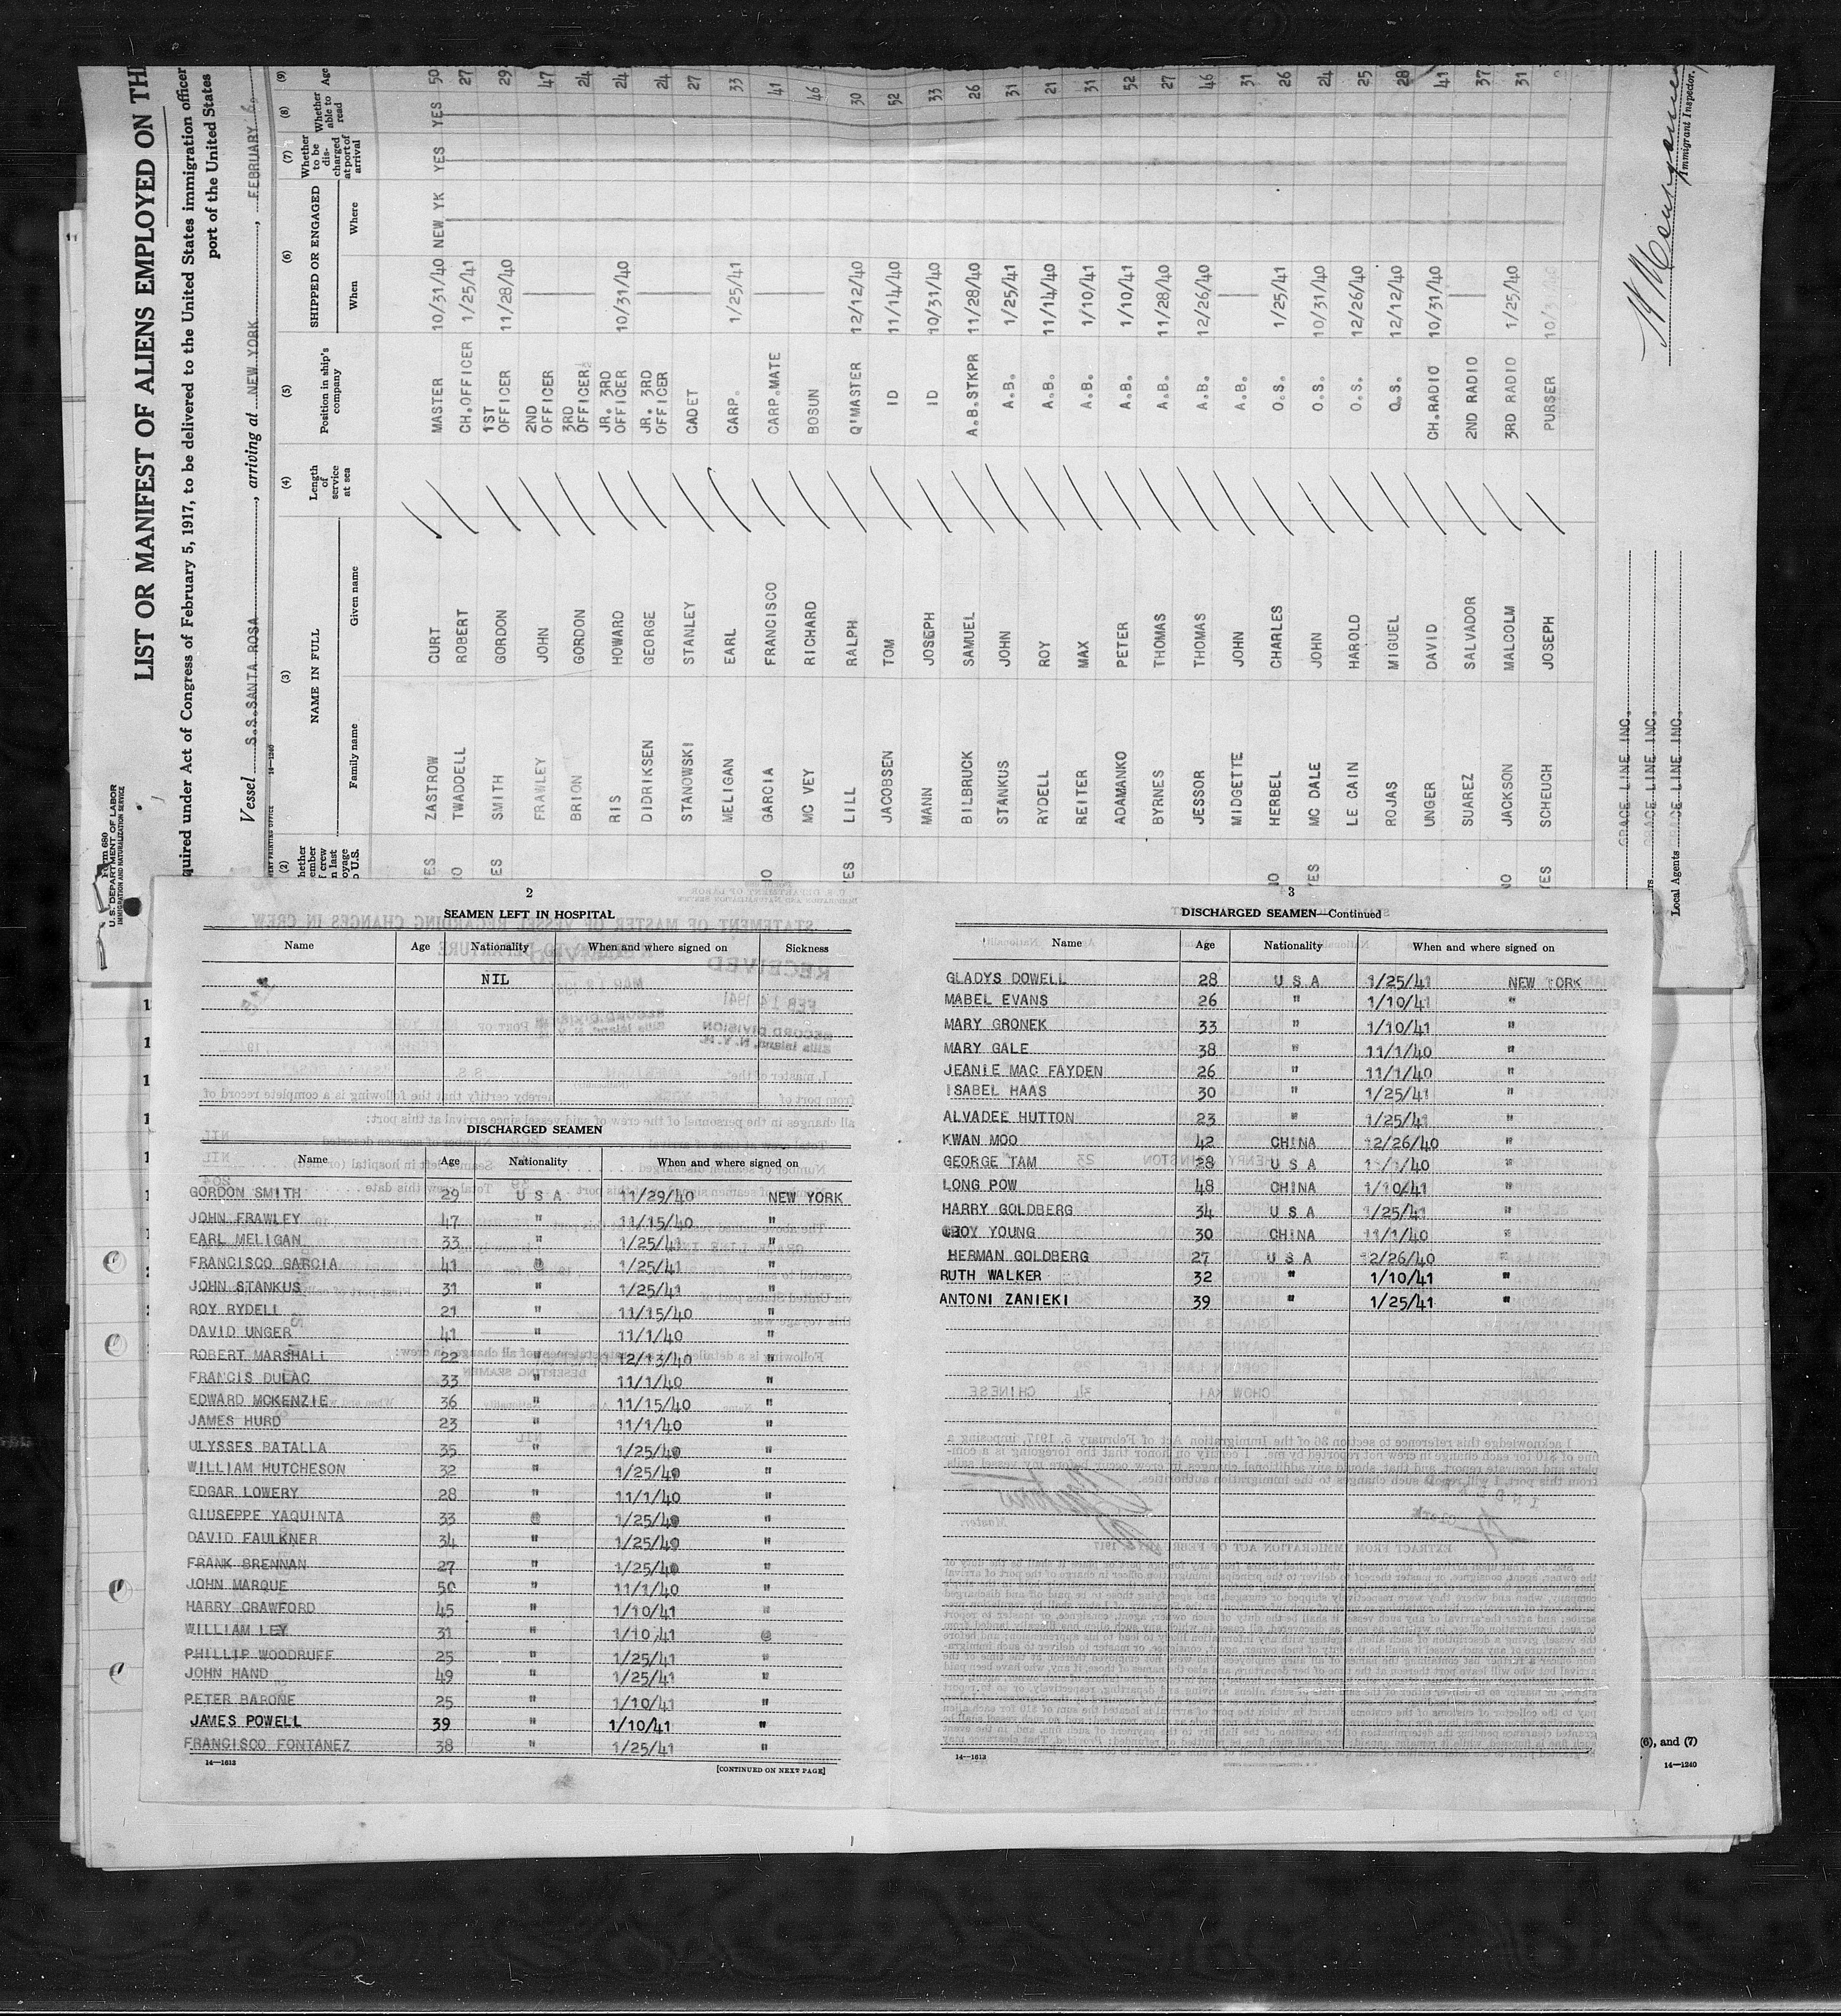 Form 680
U. S. DEPARTMENT OF LABOR
IMMIGRATION AND NATURALIZATION SERVICE
LIST OR MANIFEST OF ALIENS EMPLOYED ON TH
quired under Act of Congress of February 5, 1917, to be delivered to the United States immigration officer
port of the United States
Vessel S.S.SANTA ROSA, arriving at NEW YORK, FEBRUARY 6,
14—1240
(2) (3) (4) (5) (6) (7) (8) (9)
NAME IN FULL Length of service at sea Position in ship's company SHIPPED OR ENGAGED Whether to be discharged at port of arrival Whether able to read Age
Family name Given name When Where
YES ZASTROW CURT MASTER 10/31/40 NEW YK YES YES 50
NO TWADDELL ROBERT CH.OFFICER 1/25/41 27
YES SMITH GORDON 1ST OFFICER 11/28/40 29
FRAWLEY JOHN 2ND OFFICER 47
BRION GORDON 3RD OFFICER 24
RIS HOWARD JR. 3RD OFFICER 10/31/40 24
DIDRIKSEN GEORGE JR. 3RD OFFICER 24
STANOWSKI STANLEY CADET 27
MELIGAN EARL CARP. 1/25/41 33
NO GARCIA FRANCISCO CARP.MATE 41
MC VEY RICHARD BOSUN 46
YES LILL RALPH Q'MASTER 12/12/40 30
JACOBSEN TOM ID 11/14/40 52
MANN JOSEPH ID 10/31/40 33
BILBRUCK SAMUEL A.B.STKPR 11/28/40 26
STANKUS JOHN A.B. 1/25/41 31
RYDELL ROY A.B. 11/14/40 21
REITER MAX A.B. 1/10/41 31
ADAMANKO PETER A.B. 1/10/41 52
BYRNES THOMAS A.B. 11/28/40 27
JESSOR THOMAS A.B. 12/26/40 46
MIDGETTE JOHN A.B. 31
NO HERBEL CHARLES O.S. 1/25/41 26
YES MC DALE JOHN O.S. 10/31/40 24
LE CAIN HAROLD O.S. 12/26/40 25
ROJAS MIGUEL O.S. 12/12/40 28
UNGER DAVID CH.RADIO 10/31/40 41
SUAREZ SALVADOR 2ND RADIO 37
NO JACKSON MALCOLM 3RD RADIO 1/25/40 31
YES SCHEUCH JOSEPH PURSER
GRACE LINE INC.
GRACE LINE INC.
Local Agents GRACE LINE INC.
Immigrant Inspector.
2
SEAMEN LEFT IN HOSPITAL
Name Age Nationality When and where signed on Sickness
NIL
DISCHARGED SEAMEN
Name Age Nationality When and where signed on
GORDON SMITH 29 U S A 11/29/40 NEW YORK
JOHN FRAWLEY 47 " 11/15/40 "
EARL MELIGAN 33 " 1/25/41 "
FRANCISCO GARCIA 41 " 1/25/41 "
JOHN STANKUS 31 " 1/25/41 "
ROY RYDELL 21 " 11/15/40 "
DAVID UNGER 41 " 11/1/40 "
ROBERT MARSHALL 22 " 12/13/40 "
FRANCIS DULAC 33 " 11/1/40 "
EDWARD MCKENZIE 36 " 11/15/40 "
JAMES HURD 23 " 11/1/40 "
ULYSSES BATALLA 35 " 1/25/40 "
WILLIAM HUTCHESON 32 " 1/25/40 "
EDGAR LOWERY 28 " 11/1/40 "
GIUSEPPE YAQUINTA 33 " 1/25/40 "
DAVID FAULKNER 34 " 1/25/40 "
FRANK BRENNAN 27 " 1/25/40 "
JOHN MARQUE 50 " 11/1/40 "
HARRY CRAWFORD 45 " 1/10/41 "
WILLIAM LEY 31 " 1/10/41 "
PHILLIP WOODRUFF 25 " 1/25/41 "
JOHN HAND 49 " 1/25/41 "
PETER BARONE 25 " 1/10/41 "
JAMES POWELL 39 " 1/10/41 "
FRANCISCO FONTANEZ 38 " 1/25/41 "
14—1613 [CONTINUED ON NEXT PAGE]
3
DISCHARGED SEAMEN—Continued
Name Age Nationality When and where signed on
GLADYS DOWELL 28 U S A 1/25/41 NEW YORK
MABEL EVANS 26 " 1/10/41 "
MARY GRONEK 33 " 1/10/41 "
MARY GALE 38 " 11/1/40 "
JEANIE MAC FAYDEN 26 " 11/1/40 "
ISABEL HAAS 30 " 1/25/41 "
ALVADEE HUTTON 23 " 1/25/41 "
KWAN MOO 42 CHINA 12/26/40 "
GEORGE TAM 28 U S A 11/1/40 "
LONG POW 48 CHINA 1/10/41 "
HARRY GOLDBERG 34 U S A 1/25/41 "
CHOY YOUNG 30 CHINA 11/1/40 "
HERMAN GOLDBERG 27 U S A 12/26/40 "
RUTH WALKER 32 " 1/10/41 "
ANTONI ZANIEKI 39 " 1/25/41 "
14—1613
(6), and (7)
14—1240